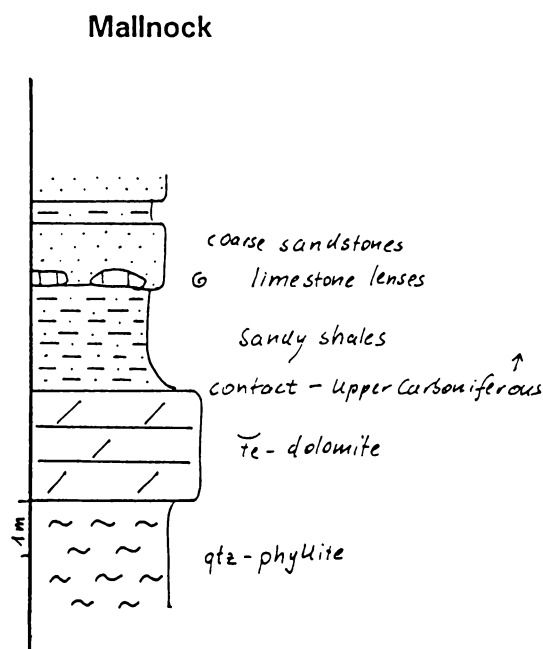 Mallnock
coarse sandstones
limestone lenses
sandy shales
contact - Upper Carboniferous
Fe - dolomite
1m
qtz - phyllite